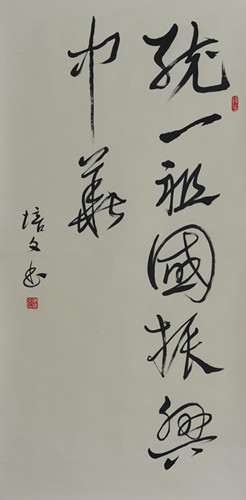 統一祖國振興
中華
培文书